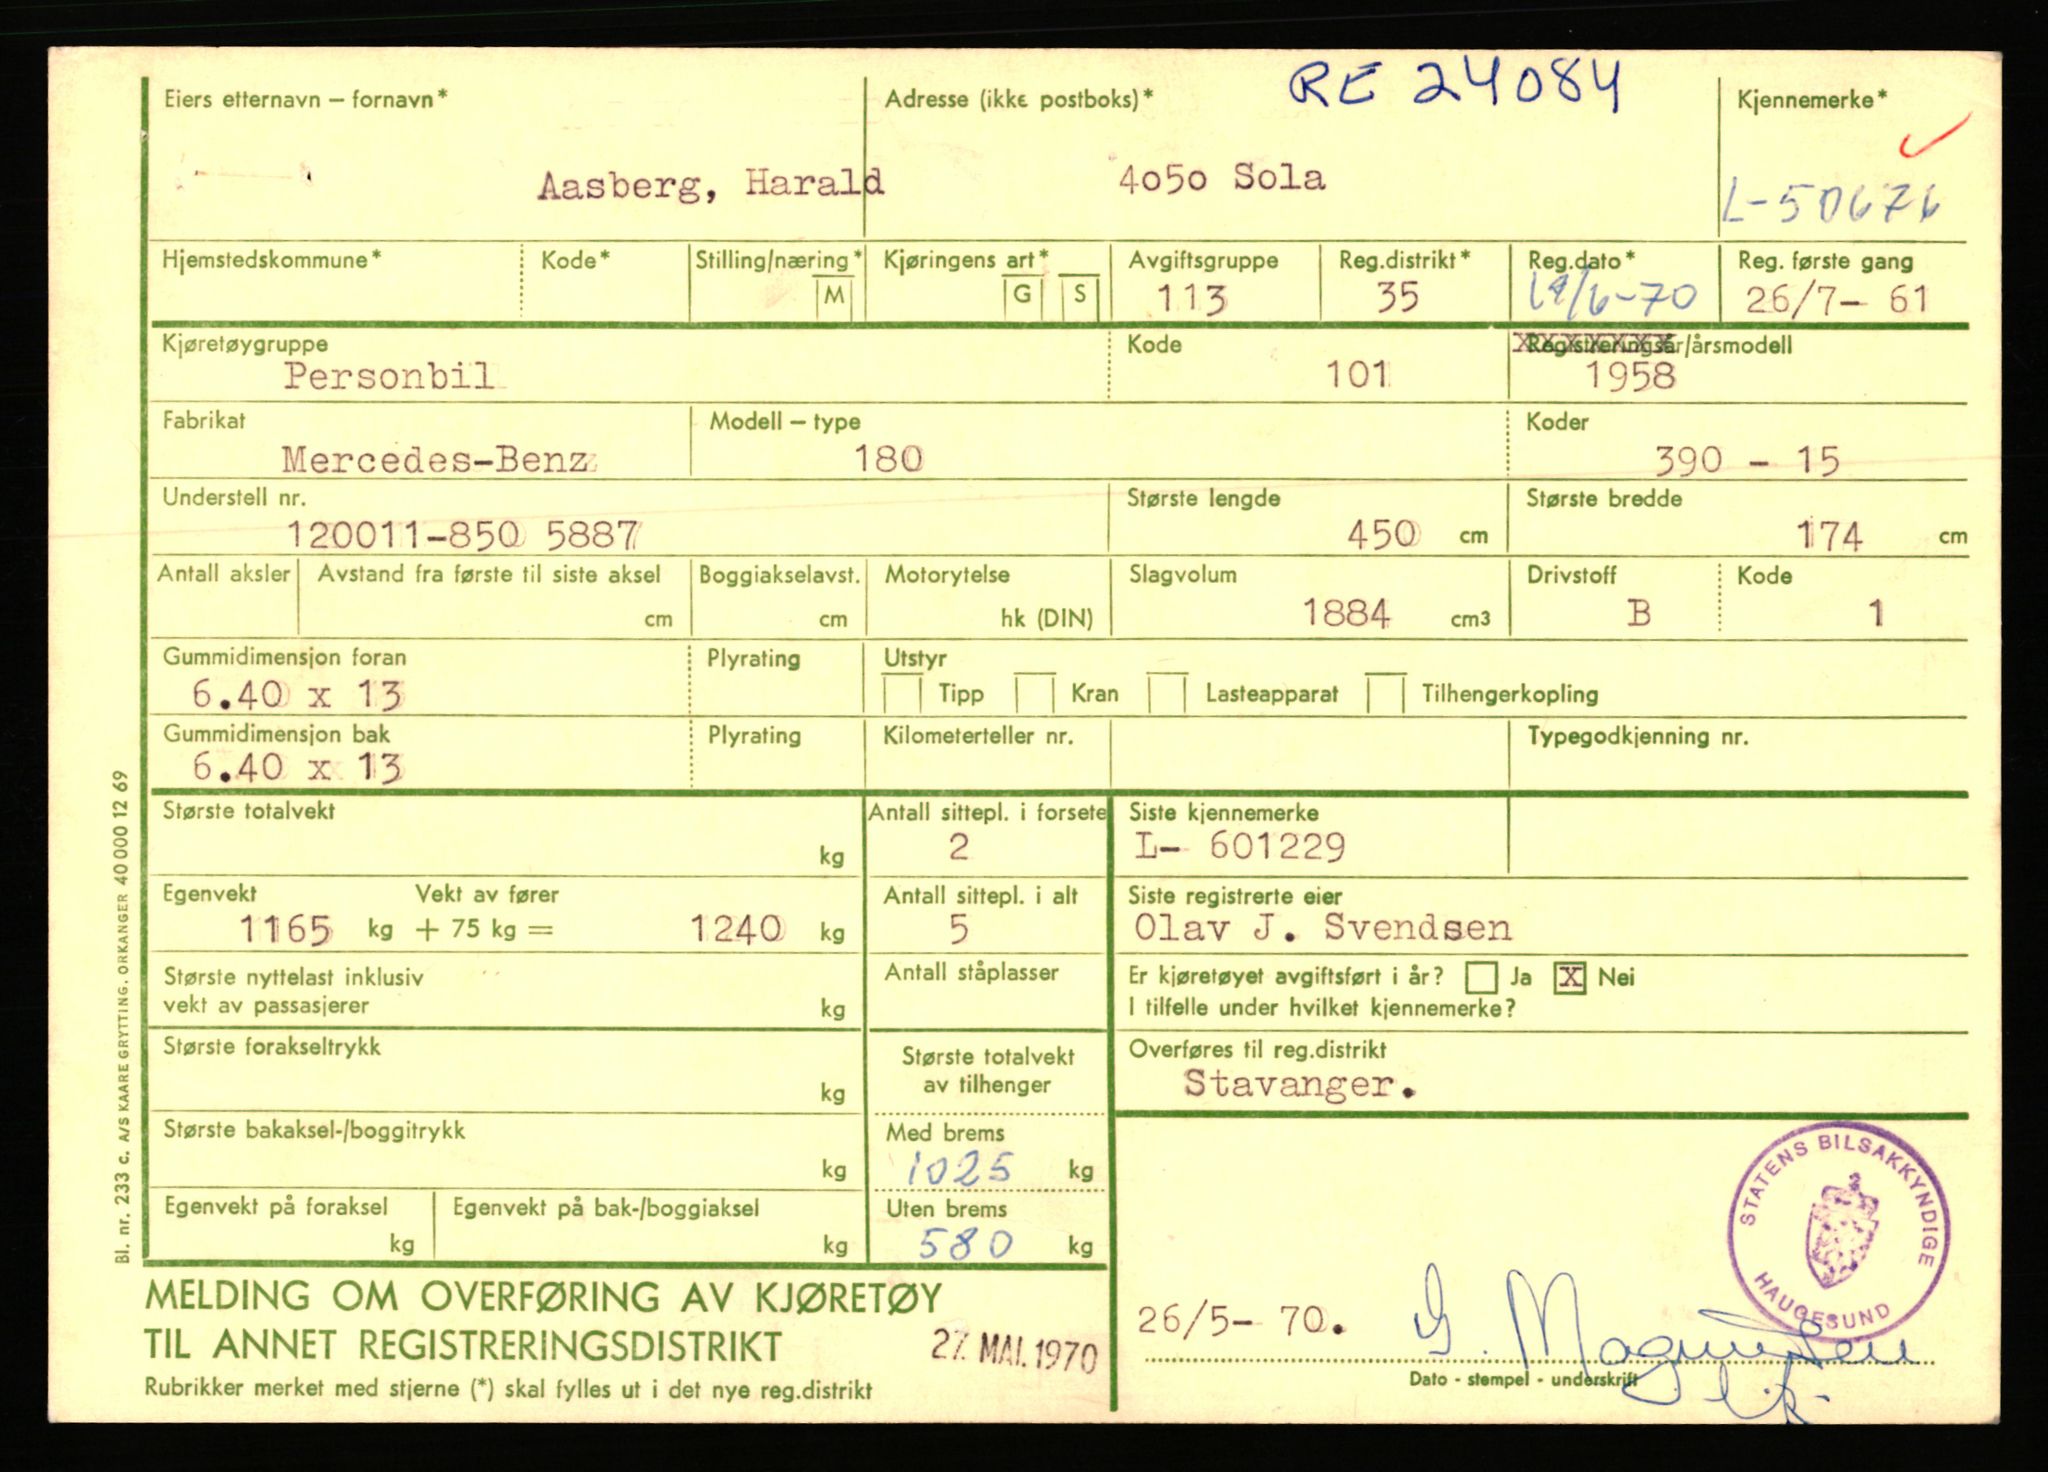 RE 24084
Eiers etternavn – fornavn* Adresse (ikke postboks)* Kjennemerke*
Aasberg, Harald 4050 Sola L-50676
Hjemstedskommune* Kode* Stilling/næring* Kjøringens art* Avgiftsgruppe Reg.distrikt* Reg.dato* Reg. første gang
M G S 113 35 /6-70 26/7- 61
Kjøretøygruppe Kode Registreringsår/årsmodell
Personbil 101 1958
Fabrikat Modell – type Koder
Mercedes-Benz 180 390 - 15
Understell nr. Største lengde Største bredde
120011-850 5887 450 cm 174 cm
Antall aksler Avstand fra første til siste aksel Boggiakselavst. Motorytelse Slagvolum Drivstoff Kode
cm cm hk (DIN) 1884 cm3 B 1
Gummidimensjon foran Plyrating Utstyr
6.40 x 13 Tipp Kran Lasteapparat Tilhengerkopling
Gummidimensjon bak Plyrating Kilometerteller nr. Typegodkjenning nr.
6.40 x 13
Største totalvekt Antall sittepl. i forsete Siste kjennemerke
kg 2 L- 601229
Egenvekt Vekt av fører Antall sittepl. i alt Siste registrerte eier
1165 kg + 75 kg = 1240 kg 5 Olav J. Svendsen
Største nyttelast inklusiv Antall ståplasser Er kjøretøyet avgiftsført i år? Ja X Nei
vekt av passasjerer kg I tilfelle under hvilket kjennemerke?
Største forakseltrykk Største totalvekt Overføres til reg.distrikt
kg av tilhenger Stavanger.
Største bakaksel-/boggitrykk Med brems
kg 1025 kg
Egenvekt på foraksel Egenvekt på bak-/boggiaksel Uten brems
kg kg 580 kg
STATENS BILSAKKYNDIGE
HAUGESUND
MELDING OM OVERFØRING AV KJØRETØY
TIL ANNET REGISTRERINGSDISTRIKT 27. MAI. 1970
26/5- 70. G. Magnussen
Dato - stempel - underskrift
Rubrikker merket med stjerne (*) skal fylles ut i det nye reg.distrikt
Bl. nr. 233 c. A/S KAARE GRYTTING, ORKANGER 40 000 12 69